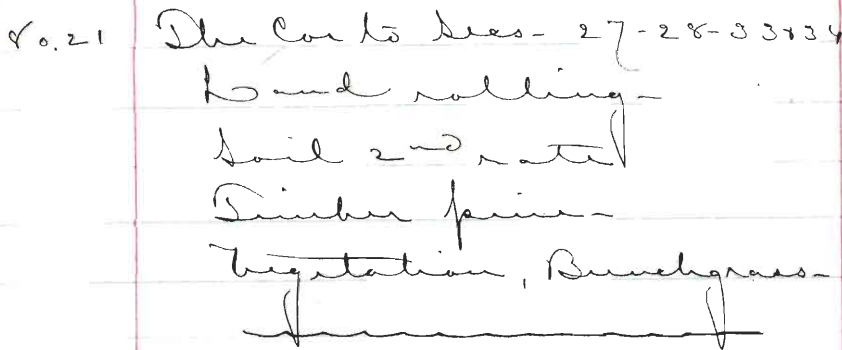 80.21 The Cor to Secs - 27-28-33&34
Land rolling -
Soil 2nd rate
Timber pine -
Vegetation, Bunchgrass -